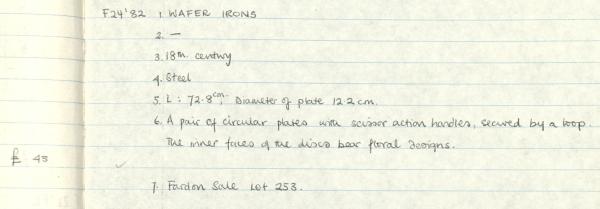 F24'82 1 WAFER IRONS
2. —
3. 18th. century
4. Steel
5. L : 72.8cm; Diameter of plate 12.2 cm.
6. A pair of circular plates with scissor action handles, secured by a loop.
The inner faces of the discs bear floral designs.
£ 45
7. Fardon Sale Lot 253.